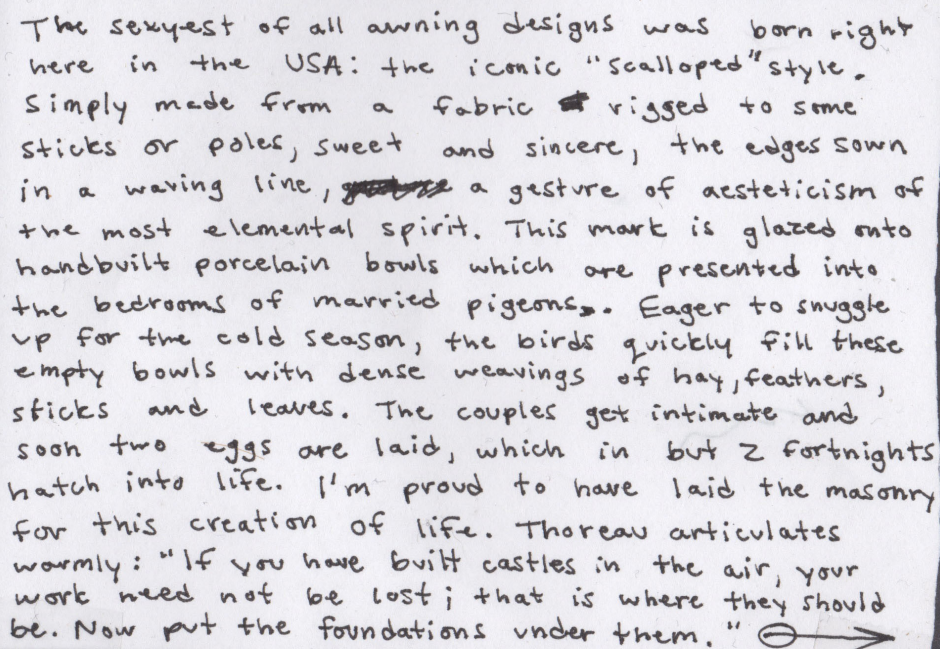 The sexyest of all awning designs was born right
here in the USA: the iconic "scalloped" style.
Simply made from a fabric rigged to some
sticks or poles, sweet and sincere, the edges sown
in a waving line, a gesture of aesteticism of
the most elemental spirit. This mark is glazed onto
handbuilt porcelain bowls which are presented into
the bedrooms of married pigeons. Eager to snuggle
up for the cold season, the birds quickly fill these
empty bowls with dense weavings of hay, feathers,
sticks and leaves. The couples get intimate and
soon two eggs are laid, which in but 2 fortnights
hatch into life. I'm proud to have laid the masonry
for this creation of life. Thoreau articulates
warmly: "If you have built castles in the air, your
work need not be lost; that is where they should
be. Now put the foundations under them."